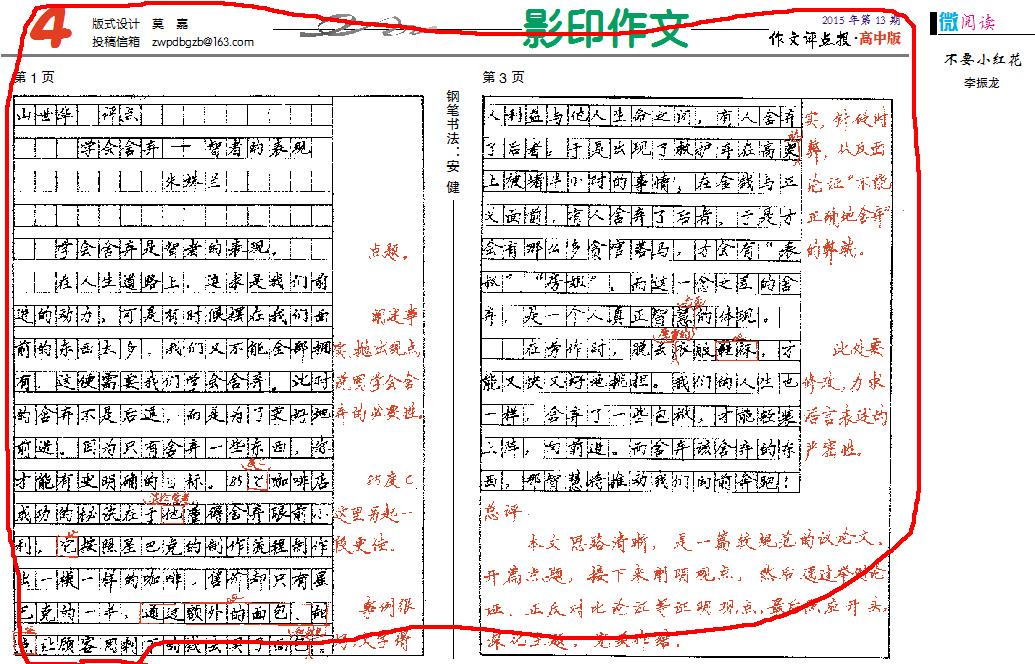 4
版式设计 莫 嘉
投稿信箱 zwpdbgzb@163.com
影印作文
2015年第13期
作文评点报·高中版
微阅读
不要小红花
李振龙
第1页
山世华 评点
学会舍弃——智者的表现
朱姝兰
学会舍弃是智者的表现。
在人生道路上，追求是我们前
进的动力，可是有时候摆在我们面
前的东西太多，我们又不能全部拥
有，这便需要我们学会舍弃。此时
的舍弃不是后退，而是为了更好地
前进。因为只有舍弃一些东西，你
才能有更明确的目标。85℃咖啡店
成功的秘诀在于他懂得舍弃眼前小
利，它按照星巴克的制作流程制作
出一模一样的咖啡，售价却只有星
巴克的一半，通过额外的面包、甜
点让顾客用剩下的钱去买了面包。
点题。
阐述事
实，抛出观点，
说明学会舍
弃的必要性。
85度C
这里另起一
段更佳。
案例很
好，汉字得
钢笔书法：安 健
第3页
人利益与他人生命之间，有人舍弃
了后者，于是出现了救护车在高速
上被堵半小时的事情；在金钱与正
义面前，有人舍弃了后者，于是才
会有那么多贪官落马，才会有“表
叔”“房姐”。而这一念之差的舍
弃，是一个人真正智慧的体现。
在劳作时，脱去衣服鞋袜，才
能又快又好地挑担。我们的人生也
一样，舍弃了一些包袱，才能轻装
上阵，向前进。而舍弃该舍弃的东
西，那智慧将推动我们向前奔跑！
实，针砭时
弊，从反面
论证“不能
正确地舍弃”
的弊端。
此处要
修改，力求
语言表述的
严密性。
总评：
本文思路清晰，是一篇较规范的议论文。
开篇点题，接下来阐明观点，然后通过举例论
证、正反对比论证等证明观点，最后照应开头，
深化主题，完美收结。